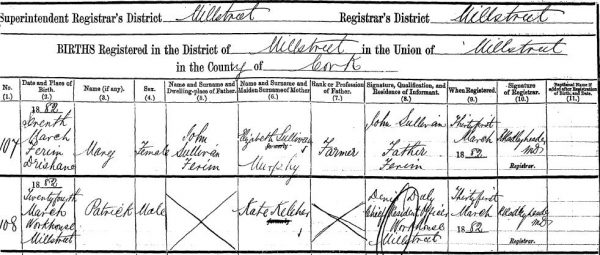 Superintendent Registrar's District Millstreet Registrar's District Millstreet
BIRTHS Registered in the District of Millstreet in the Union of Millstreet
in the County of Cork
No. (1.) Date and Place of Birth. (2.) Name (if any). (3.) Sex. (4.) Name and Surname and Dwelling-place of Father. (5.) Name and Surname and Maiden Surname of Mother. (6.) Rank or Profession of Father. (7.) Signature, Qualification, and Residence of Informant. (8.) When Registered. (9.) Signature of Registrar. (10.) Registered Name if added after Registration of Birth, and Date. (11.)
107
1882
March
Ferim
Drishane
Mary
Female
John
Sullivan
Ferim
Elizabeth Sullivan
formerly
Murphy
Farmer
John Sullivan
Father
Ferim
Thirty first
March
1882
MD
Registrar.
108
1882
Twenty fourth
March
Workhouse
Millstreet
Patrick
Male
Kate Keleher
formerly
Denis Daly
Chief Resident Officer
Workhouse
Millstreet
Thirty first
March
1882
MD
Registrar.